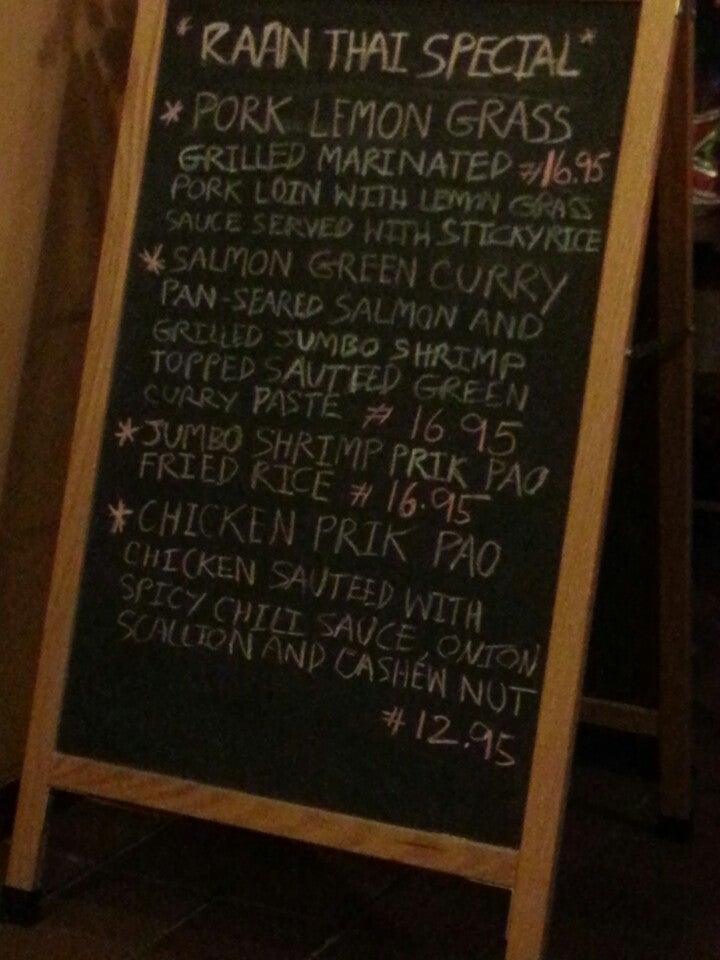 * RAAN THAI SPECIAL *
* PORK LEMON GRASS
GRILLED MARINATED #16.95
PORK LOIN WITH LEMON GRASS
SAUCE SERVED WITH STICKY RICE
* SALMON GREEN CURRY
PAN-SEARED SALMON AND
GRILLED JUMBO SHRIMP
TOPPED SAUTEED GREEN
CURRY PASTE # 16.95
* JUMBO SHRIMP PRIK PAO
FRIED RICE # 16.95
* CHICKEN PRIK PAO
CHICKEN SAUTEED WITH
SPICY CHILI SAUCE, ONION
SCALLION AND CASHEW NUT
# 12.95